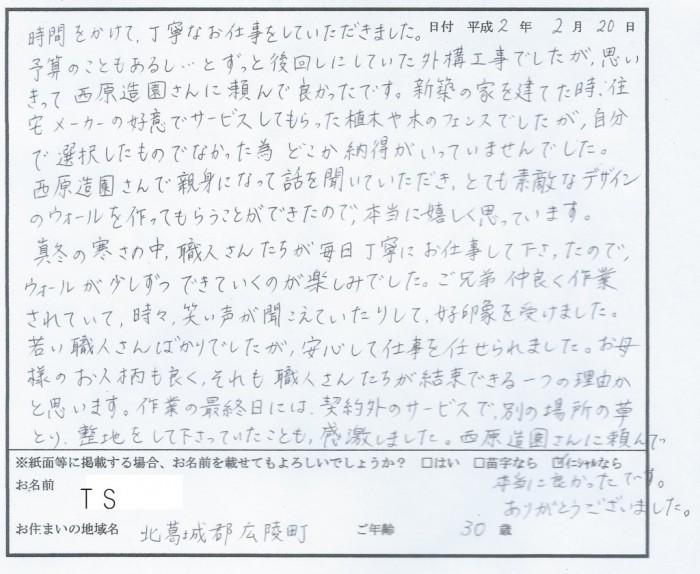 時間をかけて、丁寧なお仕事をしていただきました。日付 平成 2 年 2 月 20 日
予算のこともあるし…とずっと後回しにしていた外構工事でしたが、思い
きって西原造園さんに頼んで良かったです。新築の家を建てた時、住
宅メーカーの好意でサービスしてもらった植木や木のフェンスでしたが、自分
で選択したものでなかった為どこか納得がいっていませんでした。
西原造園さんで親身になって話を聞いていただき、とても素敵なデザイン
のウォールを作ってもらうことができたので、本当に嬉しく思っています。
真冬の寒さの中、職人さんたちが毎日丁寧にお仕事して下さったので、
ウォールが少しずつできていくのが楽しみでした。ご兄弟仲良く作業
されていて、時々、笑い声が聞こえていたりして、好印象を受けました。
若い職人さんばかりでしたが、安心して仕事を任せられました。お母
様のお人柄も良く、それも職人さんたちが結束できる一つの理由か
と思います。作業の最終日には、契約外のサービスで、別の場所の草
とり、整地をして下さっていたことも、感激しました。西原造園さんに頼んで
※紙面等に掲載する場合、お名前を載せてもよろしいでしょうか? □はい □苗字なら ☑イニシャルなら
本当に良かったです。
お名前 TS
ありがとうございました。
お住まいの地域名 北葛城郡広陵町 ご年齢 30 歳